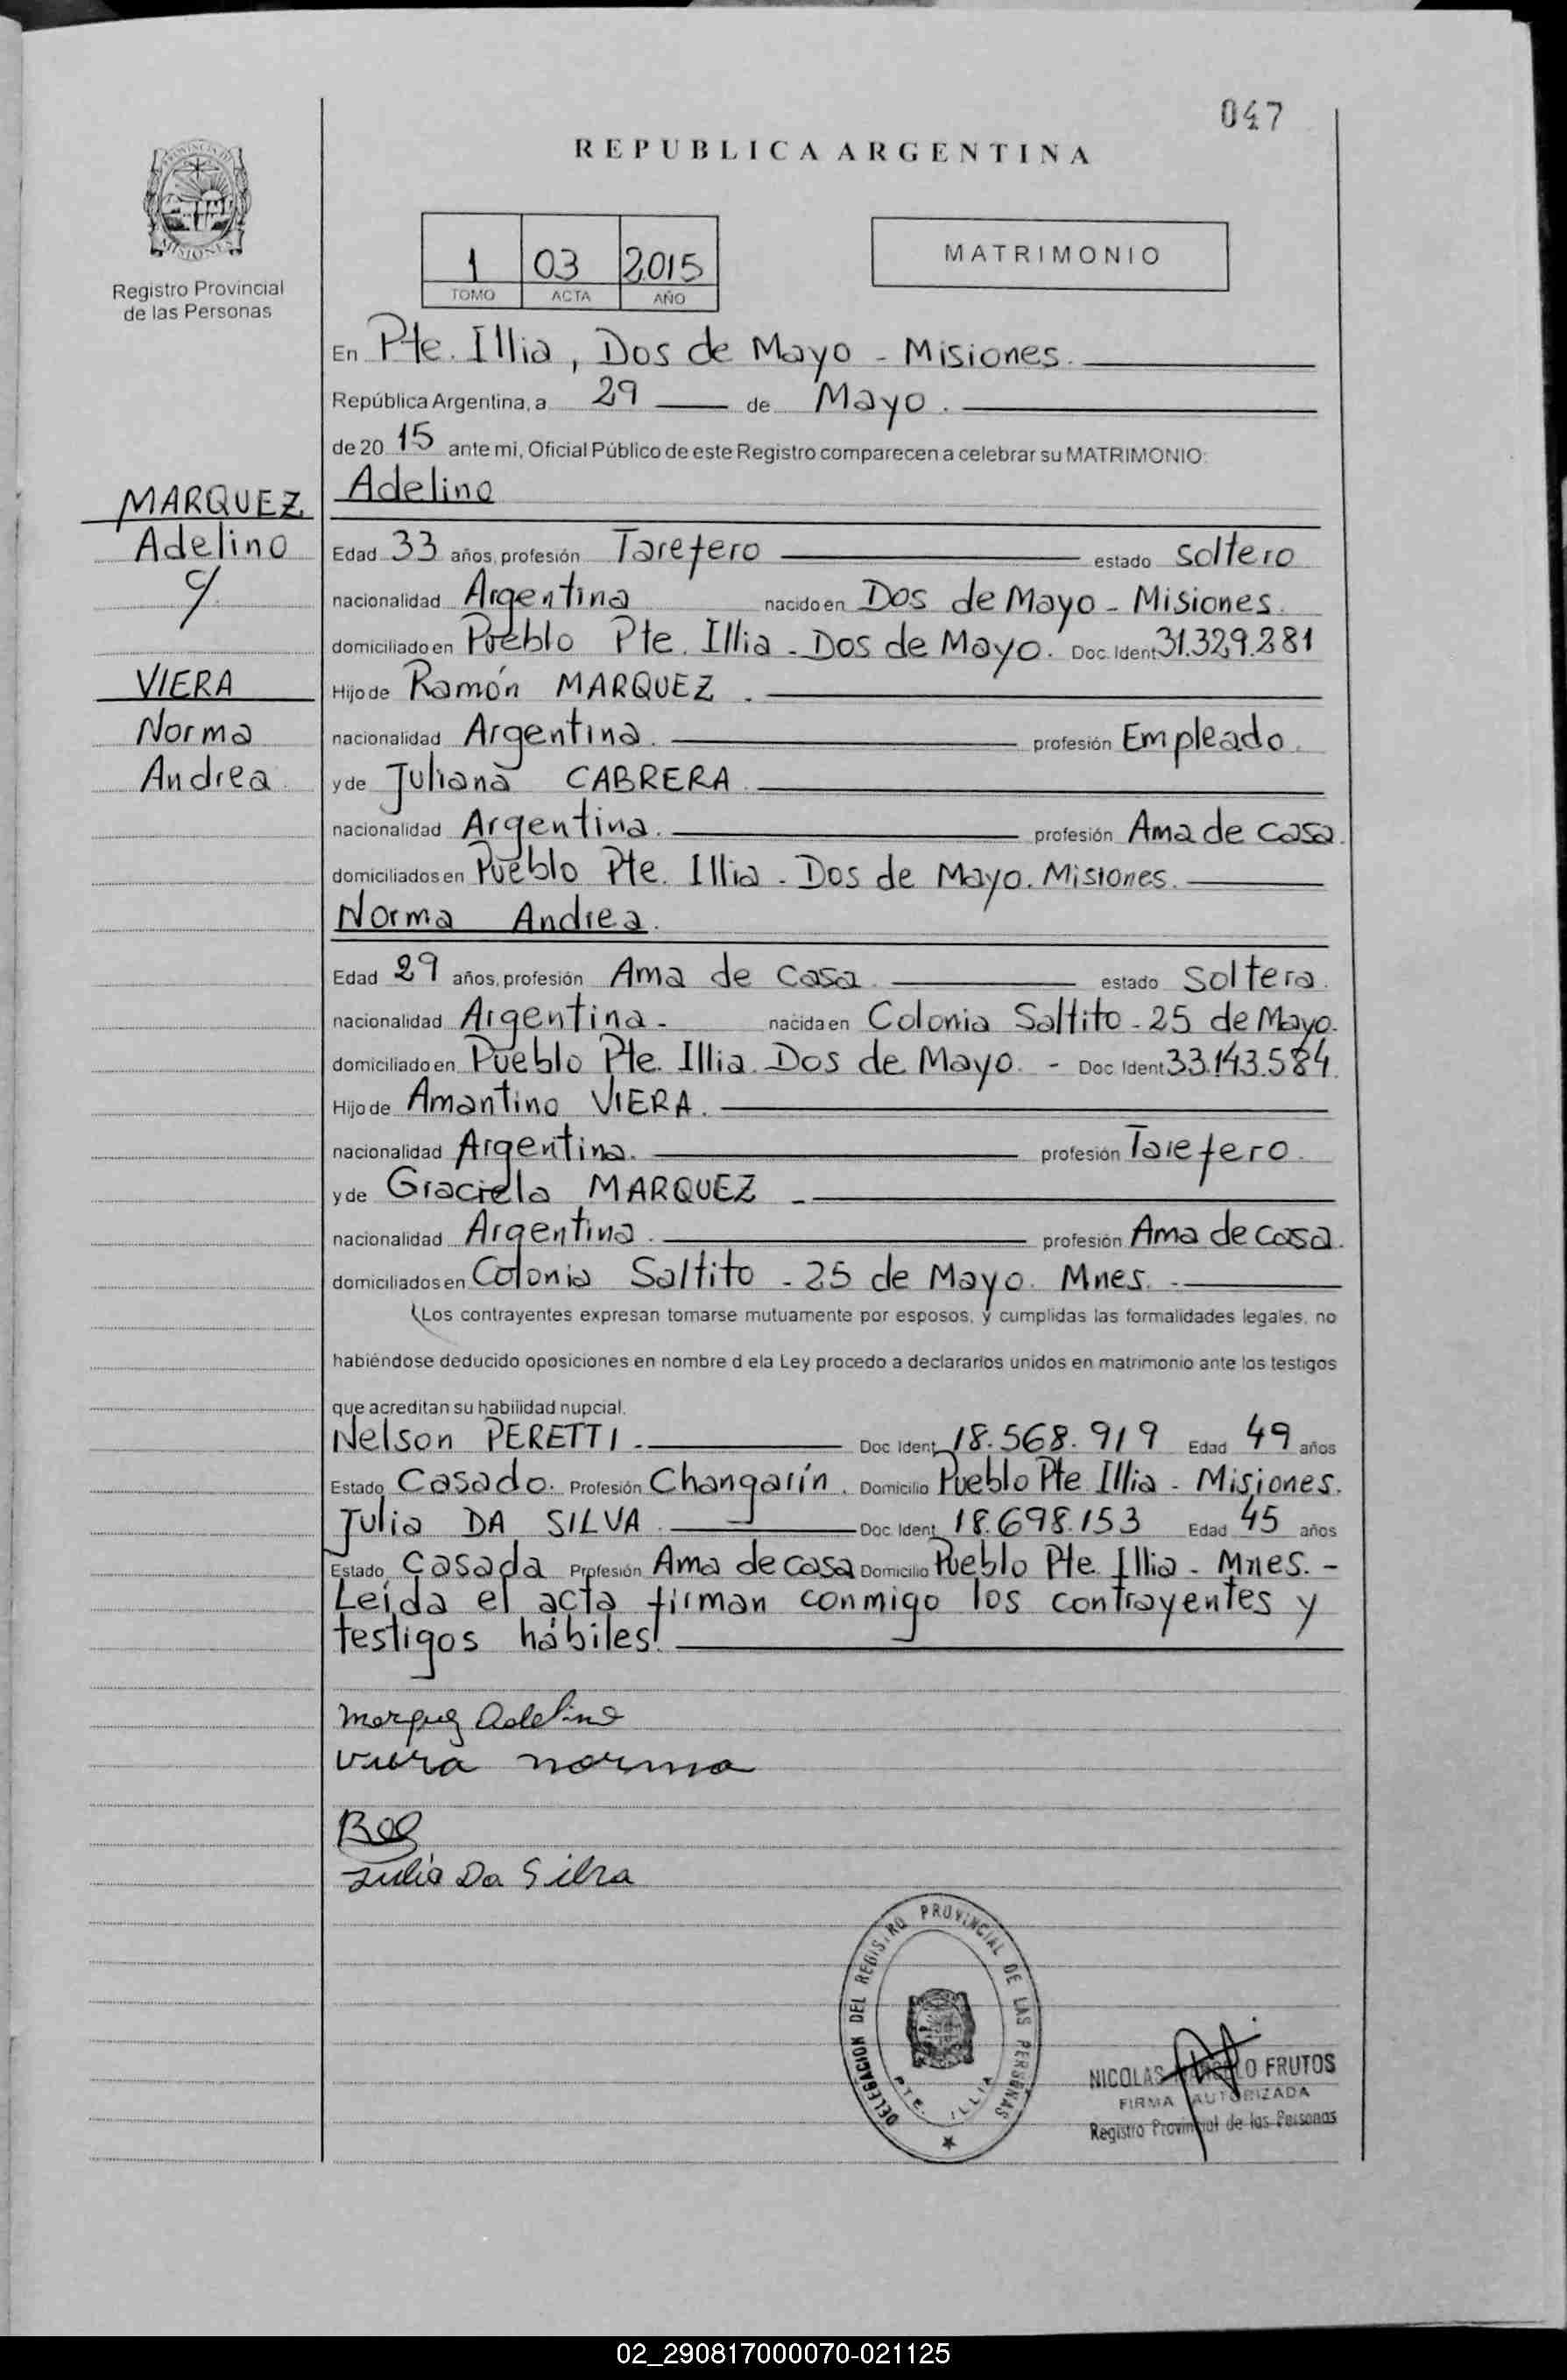 047
REPUBLICA ARGENTINA
PROVINCIA DE
MISIONES
Registro Provincial
de las Personas
1 03 2015
TOMO ACTA AÑO
MATRIMONIO
En Pte. Illia, Dos de Mayo - Misiones.
República Argentina, a 29 de Mayo.
de 20 15 ante mi, Oficial Público de este Registro comparecen a celebrar su MATRIMONIO:
MARQUEZ
Adelino
c/
VIERA
Norma
Andrea
Adelino
Edad 33 años, profesión Tarefero estado soltero
nacionalidad Argentina nacido en Dos de Mayo - Misiones.
domiciliado en Pueblo Pte. Illia - Dos de Mayo. Doc. Ident 31.329.281
Hijo de Ramón MARQUEZ.
nacionalidad Argentina. profesión Empleado.
y de Juliana CABRERA.
nacionalidad Argentina. profesión Ama de casa.
domiciliados en Pueblo Pte. Illia - Dos de Mayo. Misiones.
Norma Andrea.
Edad 29 años, profesión Ama de casa. estado Soltera.
nacionalidad Argentina - nacida en Colonia Saltito - 25 de Mayo.
domiciliado en Pueblo Pte. Illia. Dos de Mayo. - Doc. Ident 33.143.584.
Hijo de Amantino VIERA.
nacionalidad Argentina. profesión Tarefero.
y de Graciela MARQUEZ -
nacionalidad Argentina. profesión Ama de casa.
domiciliados en Colonia Saltito - 25 de Mayo. Mnes. -
(Los contrayentes expresan tomarse mutuamente por esposos, y cumplidas las formalidades legales, no
habiéndose deducido oposiciones en nombre d ela Ley procedo a declararlos unidos en matrimonio ante los testigos
que acreditan su habilidad nupcial.
Nelson PERETTI. Doc. Ident. 18.568.919 Edad 49 años
Estado Casado. Profesión Changarín. Domicilio Pueblo Pte Illia - Misiones.
Julia DA SILVA. Doc. Ident. 18.698.153 Edad 45 años
Estado Casada Profesión Ama de casa Domicilio Pueblo Pte. Illia - Mnes. -
Leída el acta firman conmigo los contrayentes y
testigos hábiles.
Marquez Adelino
Viera norma
Julia Da Silva
DELEGACION DEL REGISTRO PROVINCIAL DE LAS PERSONAS
PTE. ILLIA
NICOLAS MARCELO FRUTOS
FIRMA AUTORIZADA
Registro Provincial de las Personas
02_290817000070-021125